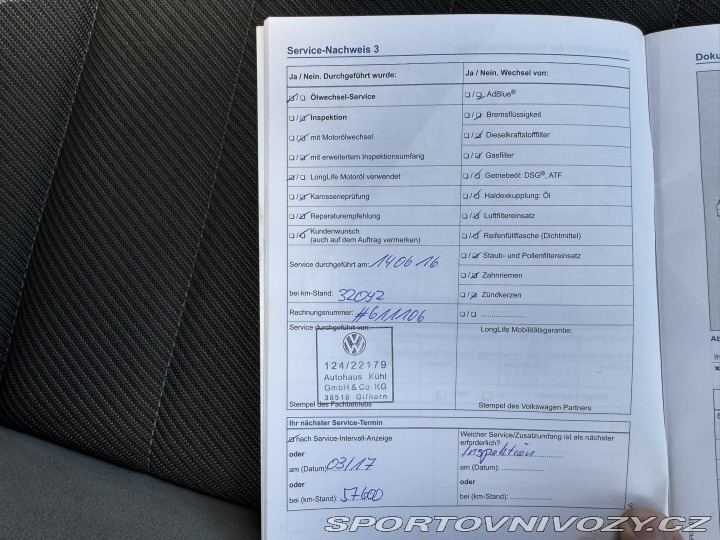 Service-Nachweis 3
Ja / Nein. Durchgeführt wurde:
Ölwechsel-Service
Inspektion
mit Motorölwechsel
mit erweitertem Inspektionsumfang
LongLife Motoröl verwendet
Karosserieprüfung
Reparaturempfehlung
Kundenwunsch
(auch auf dem Auftrag vermerken)
Service durchgeführt am: 140616
bei km-Stand: 32092
Rechnungsnummer: #611106
Service durchgeführt von:
124/22179
Autohaus Kühl
GmbH & Co. KG
38518 Gifhorn
Stempel des Fachbetriebs
Ja / Nein. Wechsel von:
AdBlue®
Bremsflüssigkeit
Dieselkraftstofffilter
Gasfilter
Getriebeöl: DSG®, ATF
Haldexkupplung: Öl
Luftfiltereinsatz
Reifenfüllflasche (Dichtmittel)
Staub- und Pollenfiltereinsatz
Zahnriemen
Zündkerzen
....................
LongLife Mobilitätsgarantie:
Stempel des Volkswagen Partners
Ihr nächster Service-Termin
nach Service-Intervall-Anzeige
oder
am (Datum): 03/17
oder
bei (km-Stand): 57600
Welcher Service/Zusatzumfang ist als nächster
erforderlich?
Inspektion
am (Datum): ....................
oder
bei (km-Stand): ....................
Doku
SPORTOVNIVOZY.CZ